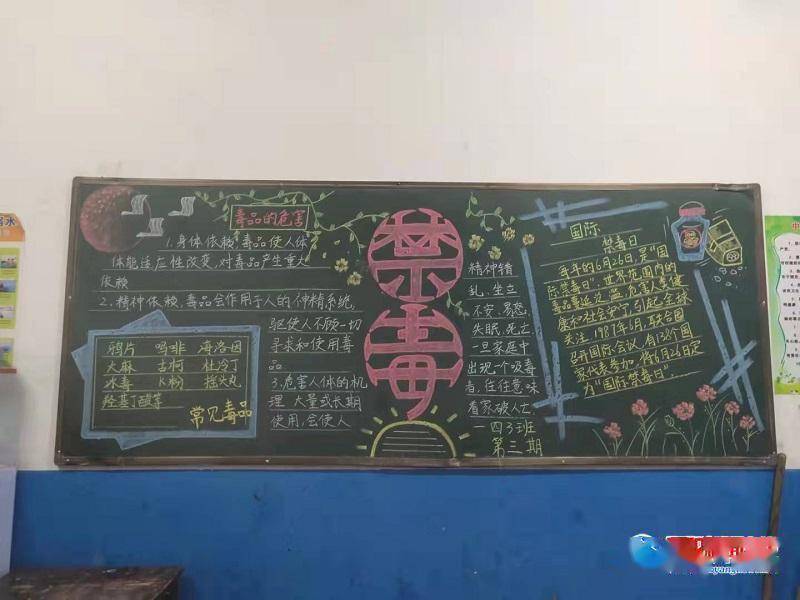 毒品的危害
1.身体依赖,毒品使人体
体能适应性改变,对毒品产生重大
依赖
2.精神依赖,毒品会作用于人的神精系统,
驱使人不顾一切
寻求和使用毒
品
3.危害人体的机
理,大量或长期
使用,会使人
鸦片 吗啡 海洛因
大麻 古柯 杜冷丁
冰毒 K粉 摇头丸
羟基丁酸等
常见毒品
禁毒
精神错
乱、坐立
不安、易怒、
失眠、死亡
一旦家庭中
出现一个吸毒
者,往往意味
着家破人亡。
一四3班
第三期
国际
禁毒日
每年的6月26日,是“国
际禁毒日”,世界范围内的
毒品蔓延泛滥,危害人类健
康和社会
引起全球
关注,1987年6月,联合国
召开国际会议,有138个国
家代表参加,将6月26日定
为“国际禁毒日”。